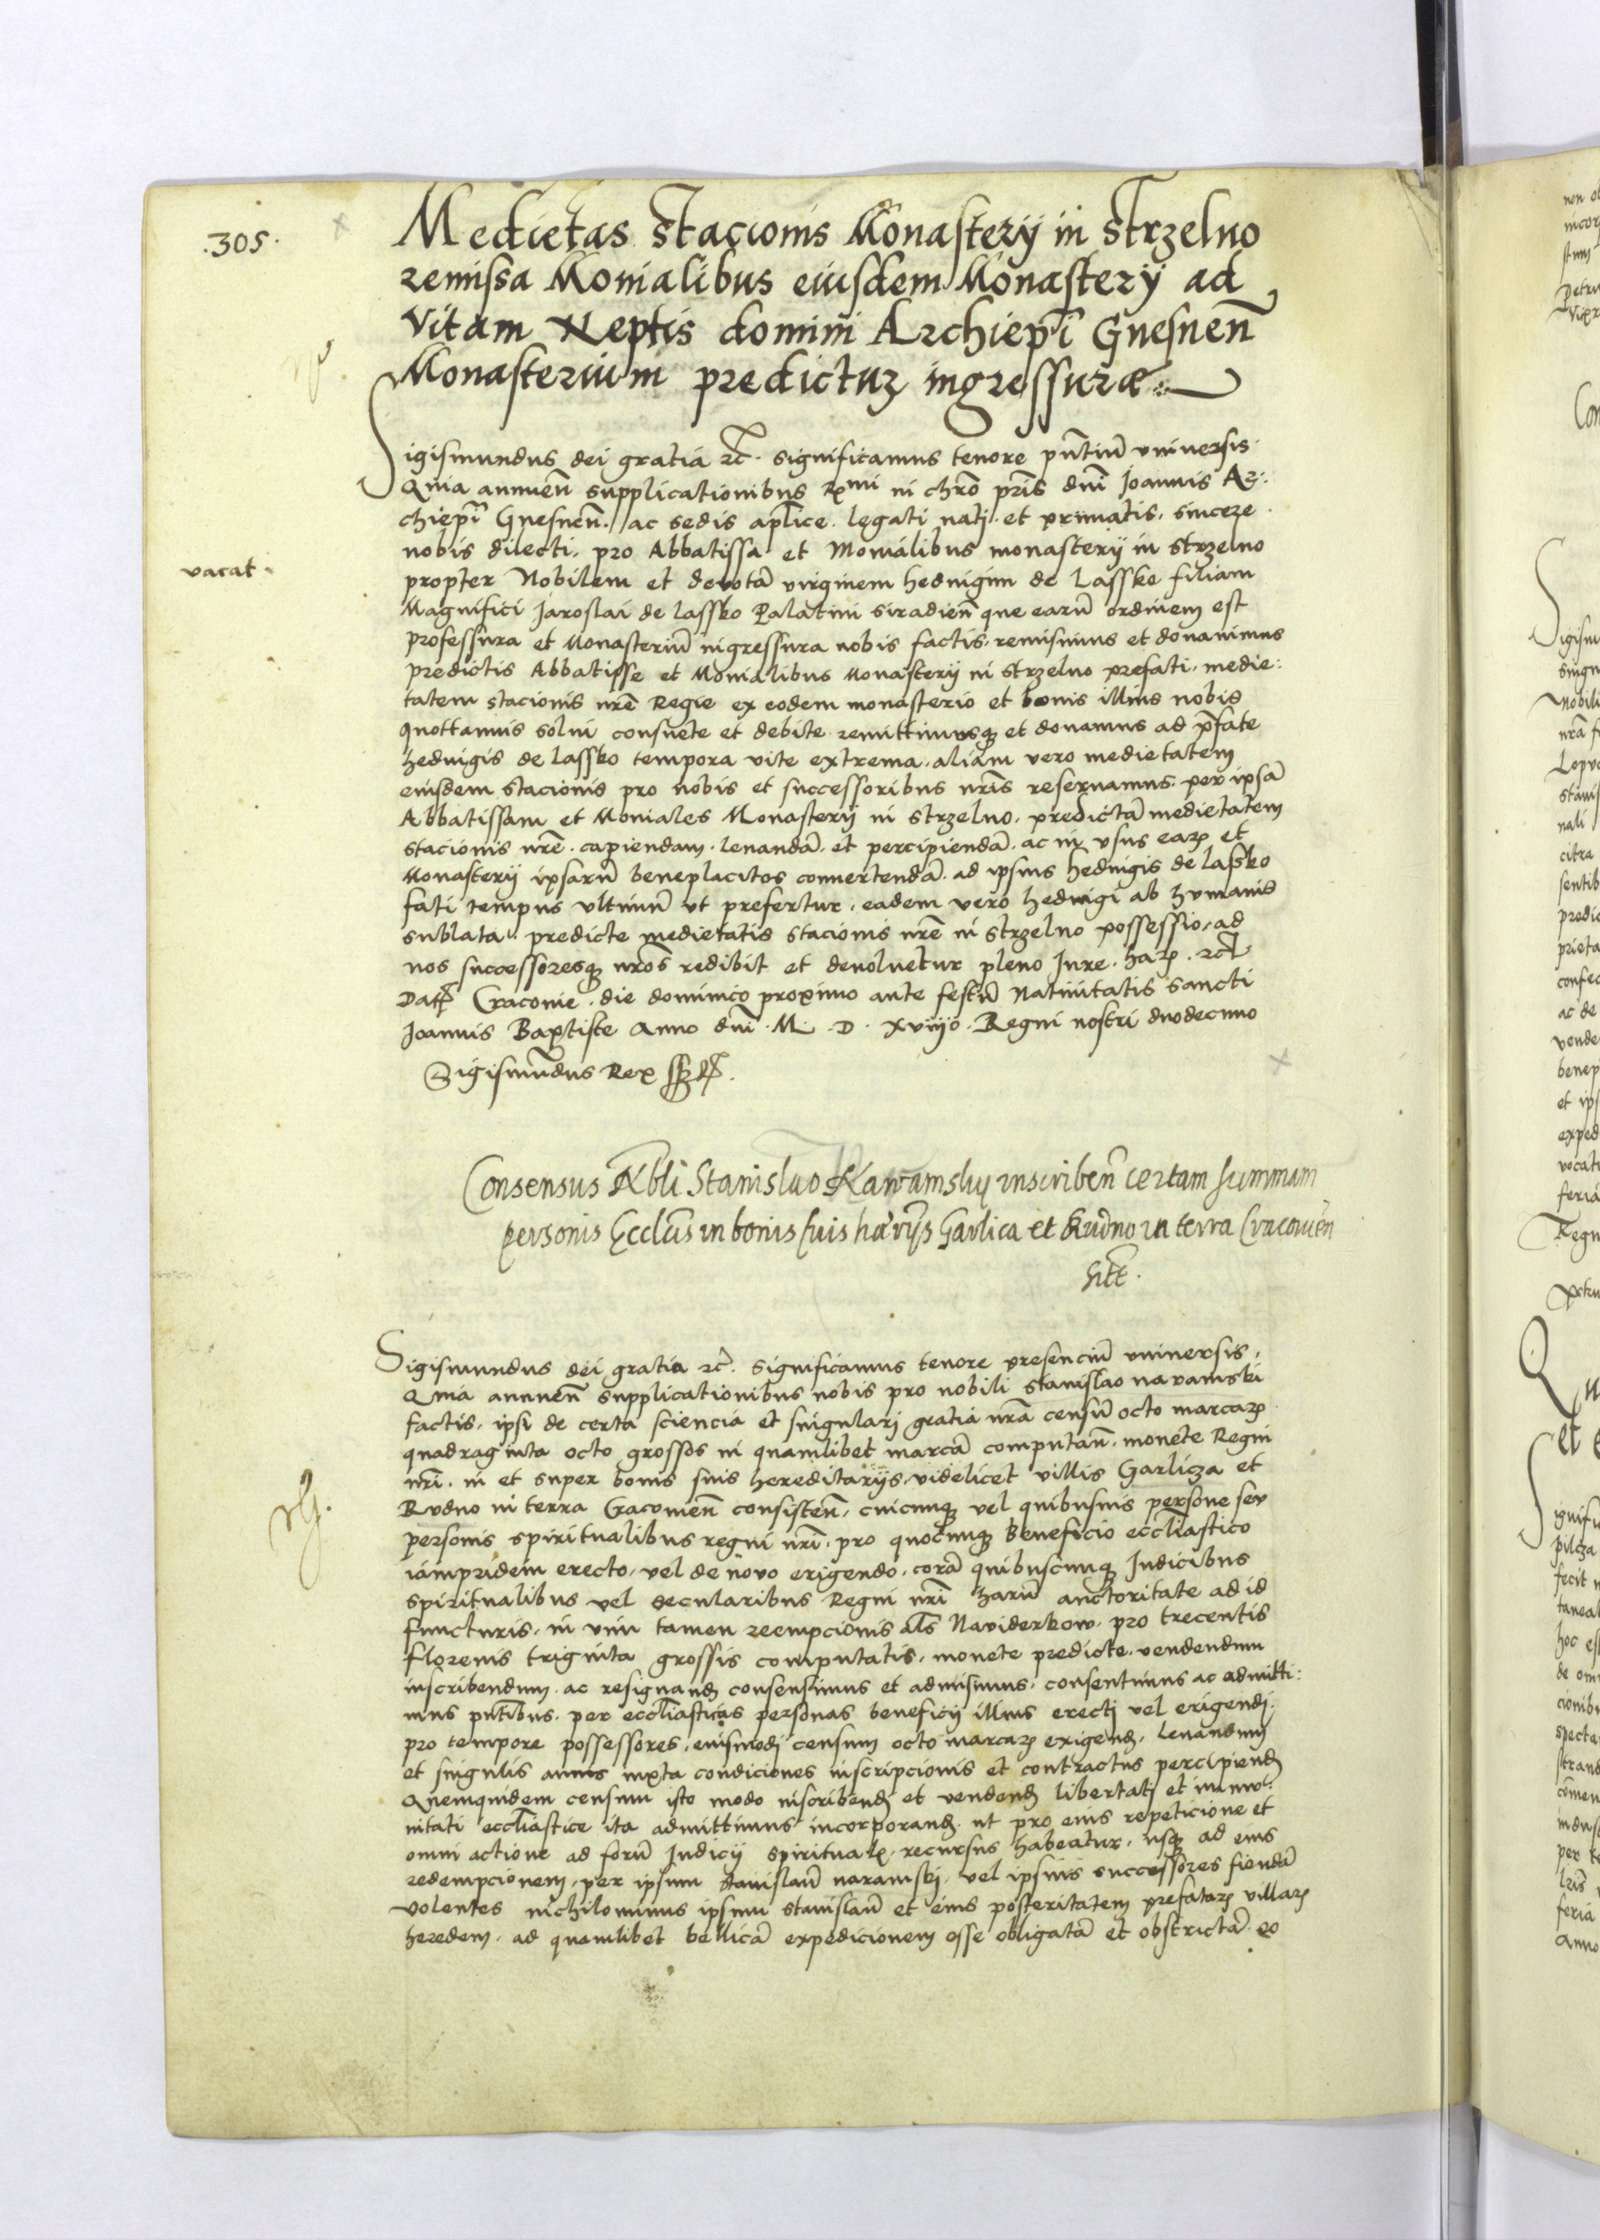 .305.
Medietas Stacionis Monastery in Strzelno
remissa Monialibus eiusdem Monastery ad
vitam Neptis domini Archiepi Gnesnen
Monasterium predictum ingressuræ
Sigismundus dei gratia etc. significamus tenore pntium universis.
Quia annuen supplicationibus Rmi in chro pris dni Joannis Ar:
chiepi Gnesnen. ac sedis aplice. legati nati. et primatis. sincere
nobis dilecti. pro Abbatissa et Monialibus monastery in Strzelno
vacat.
propter Nobilem et devota virginem hedvigim de Lassko filiam
Magnifici Jaroslai de lassko Palatini siradien que earu ordinem est
professura et Monasteriu ingressura nobis factis. remisimus et donavimus
predictis Abbatisse et Monialibus Monastery in Strzelno prefati. medie:
tatem stacionis nre Regie ex eodem monasterio et bonis illius nobis
quottannis solvi consuete et debite remittimusq et donamus ad pfate
hedvigis de lassko tempora vite extrema. aliam vero medietatem
eiusdem stacionis pro nobis et successoribus nris reservamus. per ipsa
Abbatissam et Moniales Monastery in Strzelno. predicta medietatem
stacionis nre. capiendam. levanda. et percipienda. ac in usus earum et
Monastery ipsaru beneplacitos convertenda. ad ipsius hedvigis de lassko
fati tempus ultimu ut prefertur. eadem vero hedvigi ab humanis
sublata. predicte medietatis stacionis nre in Strzelno possessio. ad
nos successoresq nros redibit et devolvetur pleno Jure. harum. etc
Datum Cracovie. die dominico proximo ante festu Nativitatis sancti
Joannis Baptiste Anno dni. M. D. xviijo. Regni nostri duodecimo
Sigismundus Rex sspt.
Consensus Nbli Stanislao Navamsky inscriben certam summam
personis Ecclcis in bonis suis harijs Garlica et Rudno in terra Cracovien
sitt.
Sigismundus dei gratia etc. significamus tenore presenciu universis.
Quia annuen supplicationibus nobis pro nobili Stanislao navamski
factis. ipsi de certa sciencia et singulari gratia nra censu octo marcarum
quadraginta octo grossos in quamlibet marca computan. monete Regni
nri. in et super bonis suis hereditarijs. videlicet villis Garlicza et
Rudno in terra Cracovien consisten. cuicunq vel quibusvis persone seu
personis spiritualibus regni nri. pro quocunq beneficio eccliastico
iampridem erecto. vel de novo erigendo. cora quibuscunq Judicibus
spiritualibus vel secularibus Regni nri haru auctoritate ad id
functuris. in vim tamen reempcionis als Naviderkow. pro trecentis
florenis triginta grossis computatis. monete predicte. vendendum
inscribendum. ac resignand consensimus et admisimus. consentimus ac admitti:
mus pntibus. per eccliasticas personas beneficij illius erecti vel erigendi.
pro tempore possessores. eiusmodi censum octo marcarum exigend. levandum
et singulis annis iuxta condiciones inscripcionis et contractus percipiend
Quemquidem censum isto modo inscribend et vendend libertati et immu:
nitati eccliastice ita admittimus incorporand. ut pro eius repeticione et
omni actione ad foru Judicij spiritualem. recursus habeatur. usq ad eius
redempcionem. per ipsum Stanislau navamski. vel ipsius successores fienda
volentes nichilominus ipsum Stanislau et eius posteritatem prefatarum villarum
heredem. ad quamlibet bellica expedicionem esse obligata et obstricta. eo